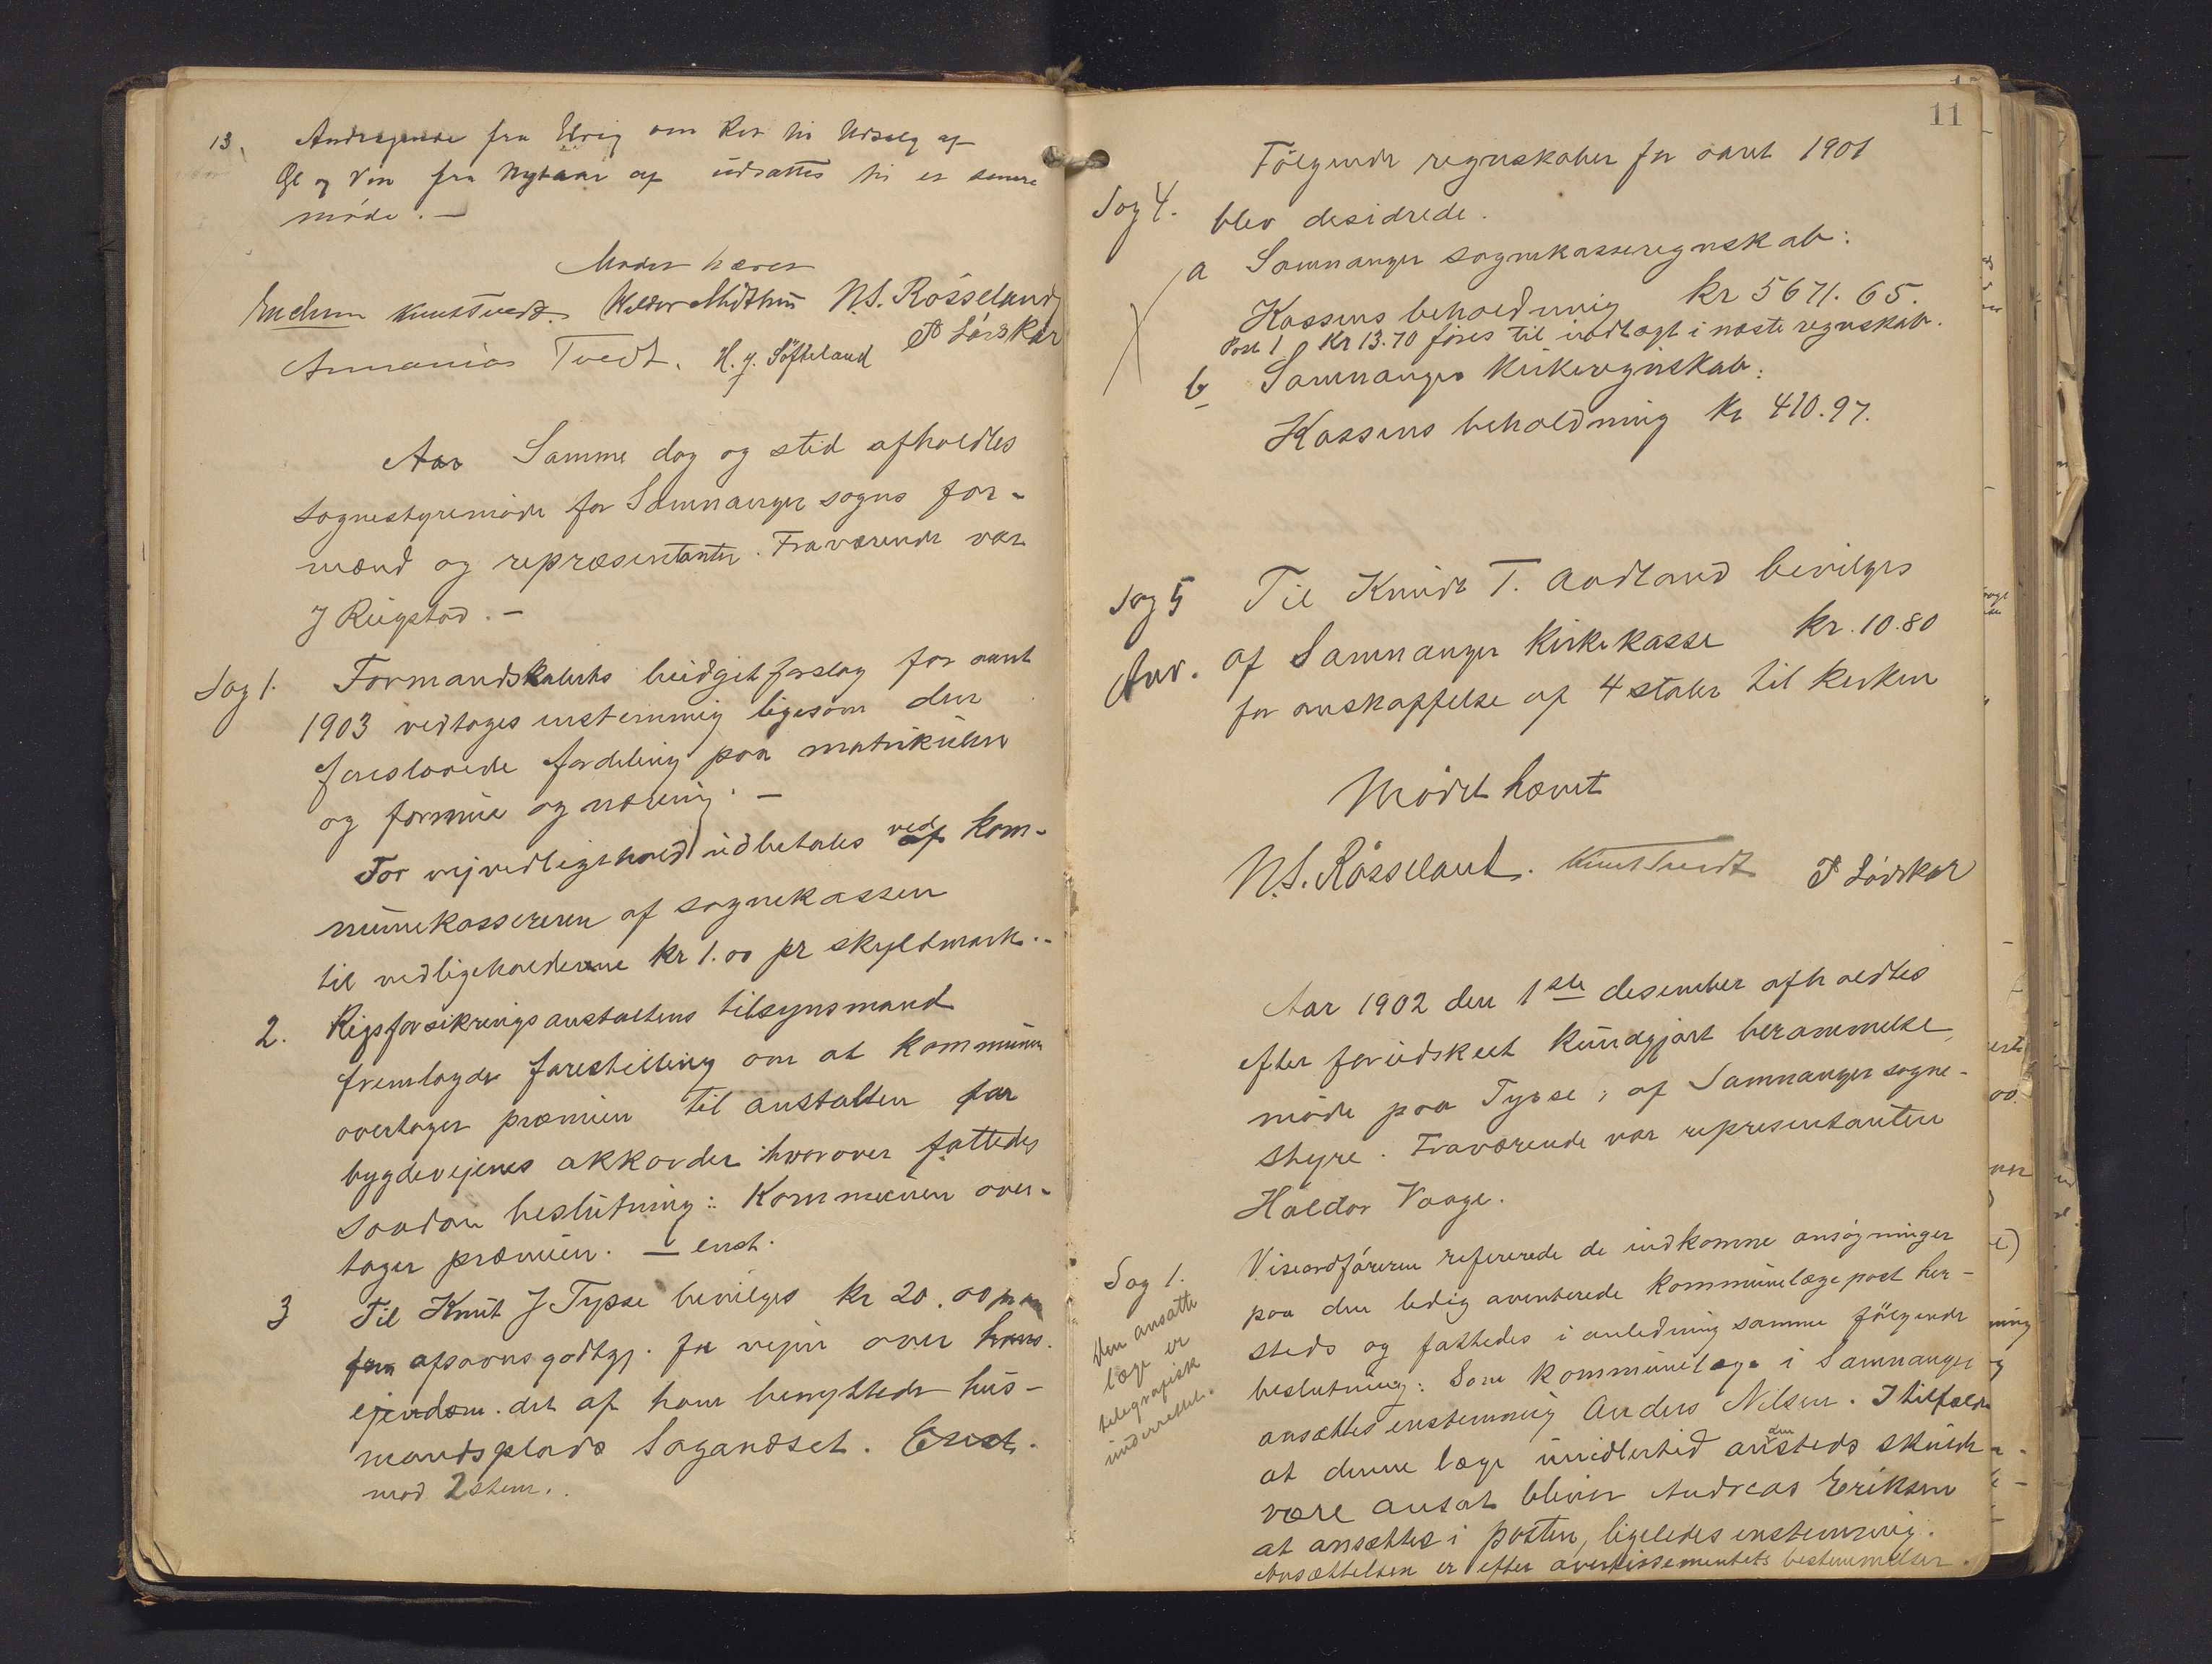 13. Andragende fra Elvig om Ret til Udsalg af
Øl og Vin fra Nytaar af udsattes til et senere
møde. —
Mødet hævet
Knut Tvedt. Haldor Midthun N.S. Rösseland
Annanias Tvedt. H. J. Söfteland P Lörskar
Aar Samme dag og sted afholdtes
sognestyremøde for Samnanger sogns for-
mænd og repræsentanter. Fraværende var
J Reigstad. —
Sag 1. Formandskabets budgetforslag for aaret
1903 vedtages enstemmig ligesom den
foreslaaede fordeling paa matrikulen
og formue og næring. —
For veivedligehold udbetales ved kom-
munekassereren af sognekassen
til vedligeholderne kr 1.00 pr skyldmark. -
2. Rigsforsikringsanstaltens tilsynsmand
fremlagde forestilling om at kommunen
overtager præmien til anstalten for
bygdeveienes akkorder hvorover fattedes
saadan beslutning: Kommunen over-
tager præmien. — enst.
3 Til Knut J Tysse bevilges kr 20.00 pr aar
afsavnsgodtgj. for veien over hans
eiendom. det af ham benyttede hus-
mandsplads Saganeset. Enst.
mod 2 stem.
11
Følgende regnskaber for aaret 1901
Sag 4. blev desidrede.
a Samnanger sognekasseregnskab:
Kassens beholdning kr 5671.65.
Post 1 Kr 13.70 føres til indtægt i næste regnskab.
b Samnanger kirkeregnskab:
Kassens beholdning kr 410.97.
Sag 5 Til Knudt T. Aadland bevilges
Anv. af Samnanger kirkekasse kr. 10.80
for anskaffelse af 4 stoler til kirken
Mødet hævet
N.S. Rösseland. Knut Tvedt P Lörskar
Aar 1902 den 1ste desember afholdtes
efter forudskeet kundgjort berammelse,
møde paa Tysse, af Samnanger sogne-
styre. Fraværende var representanten
Haldor Vaage.
Sag 1. Viseordføreren refererede de indkomne ansøgninger
paa den ledig averterede kommunelægepost her-
steds og fattedes i anledning samme følgende
beslutning: Som kommunelæge i Samnanger
ansættes enstemmig Anders Nilsen. I tilfælde
at denne læge imidlertid andensteds skulde
være ansat bliver Andreas Eriksen
at ansættes i posten, ligeledes enstemmig.
Ansættelsen er efter avertissementets bestemmelser.
Den ansatte
læge er
telegrafisk
underrettet.